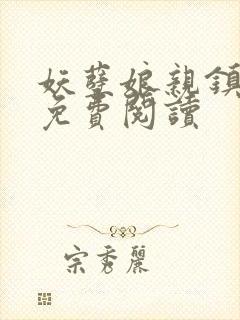 妖孽娘親鎮
免費閱讀
宗秀麗